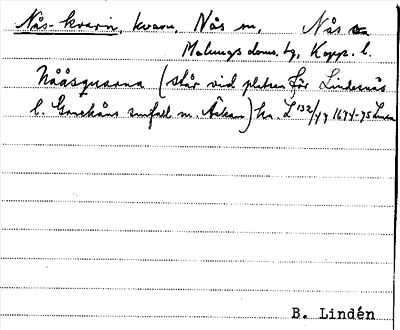 Nås-kvarn, kvarn, Nås sn, Nås
Malungs doms. tg, Kopp. l.
Nååsquarna (står vid platsen för Lindesnäs
l. inflöd m. ) ka. L 132/47 1674-75
B. Lindén